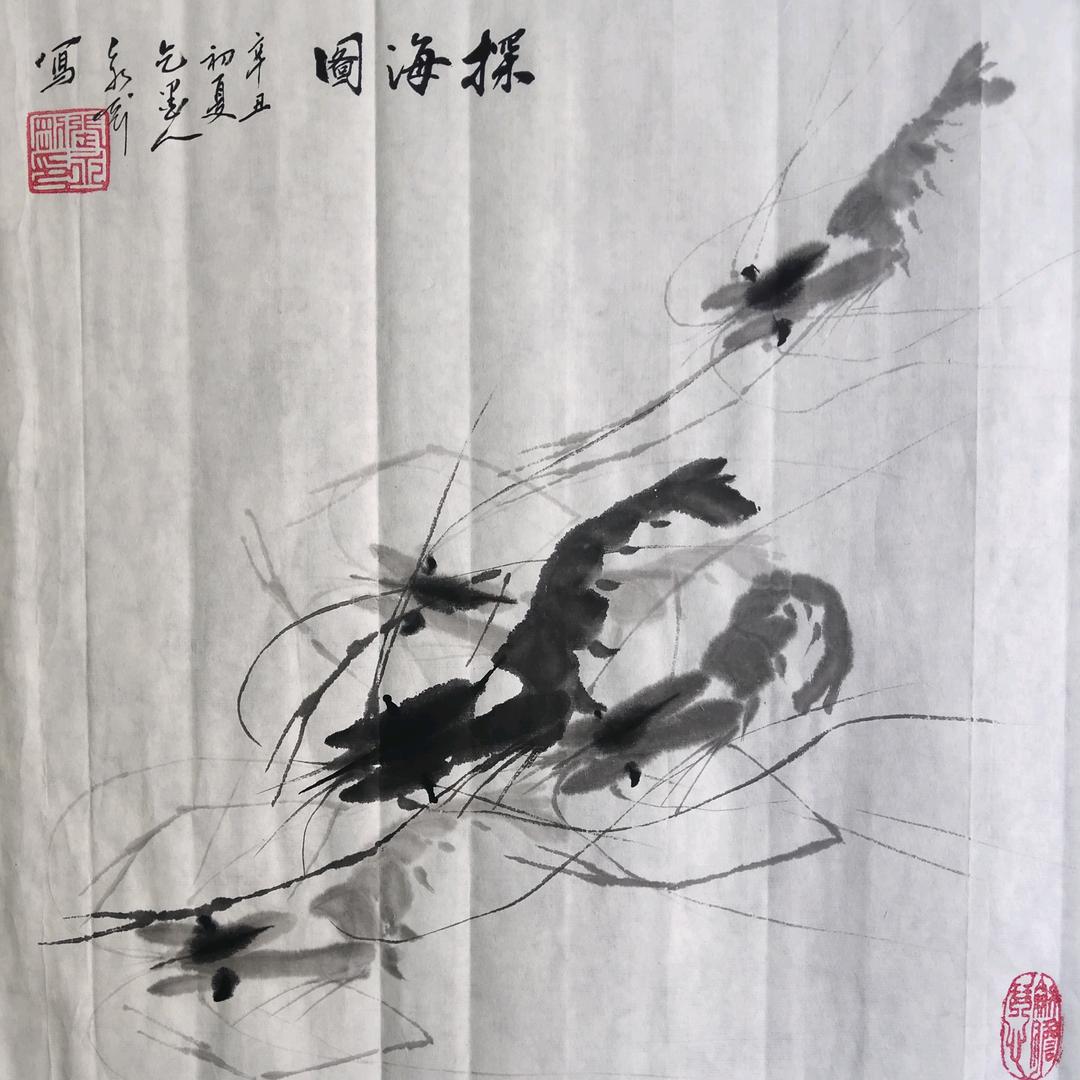 探海圖
辛丑
初夏
乞墨人
永剛
寫